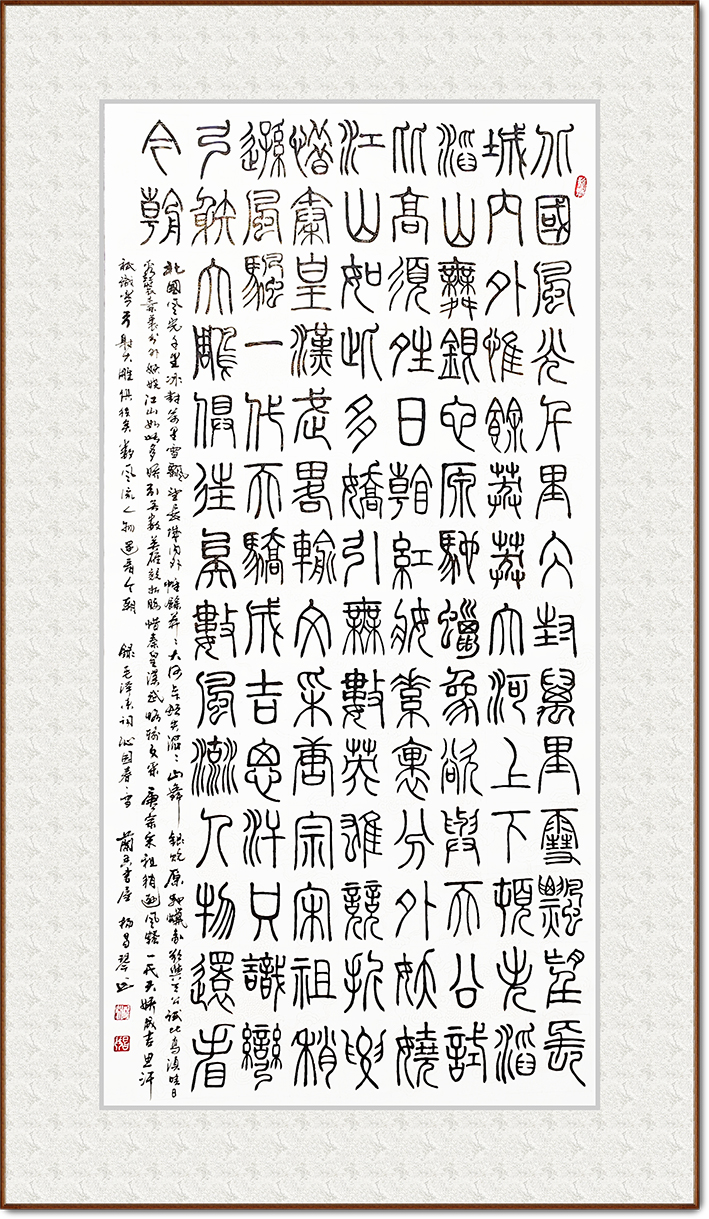 北國風光千里冰封萬里雪飄望長
城內外惟餘莽莽大河上下頓失滔
滔山舞銀蛇原馳蠟象欲與天公試
比高須晴日看紅妝素裹分外妖嬈
江山如此多嬌引無數英雄競折腰
惜秦皇漢武略輸文采唐宗宋祖稍
遜風騷一代天驕成吉思汗只識彎
弓射大雕俱往矣數風流人物還看
今朝
北國風光千里冰封萬里雪飄望長城內外惟餘莽〻大河上下頓失滔〻山舞銀蛇原馳蠟象欲與天公試比高須晴日
看紅裝素裹分外妖嬈江山如此多嬌引無數英雄競折腰惜秦皇漢武略輸文采唐宗宋祖稍遜風騷一代天驕成吉思汗
祇識彎弓射大雕俱往矣數風流人物還看今朝 錄毛澤東詞沁園春雪 書屋 楊琴